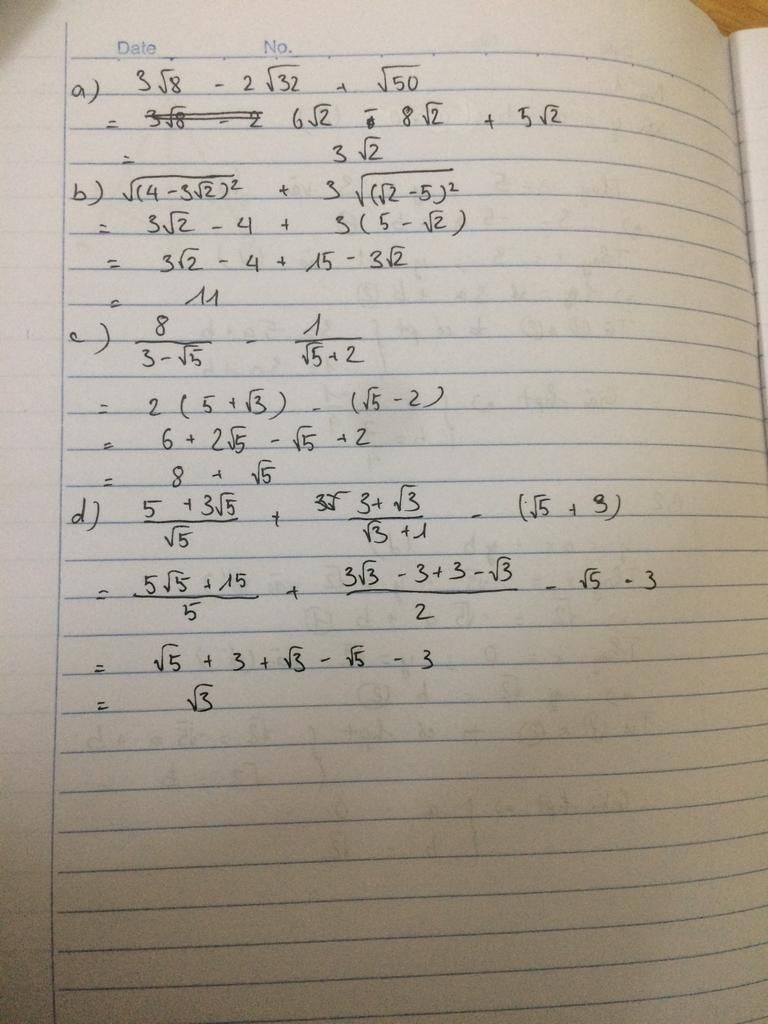 Date No.
a) 3√8 - 2√32 + √50
= 6√2 - 8√2 + 5√2
= 3√2
b) √(4-3√2)² + 3√(√2-5)²
= 3√2 - 4 + 3(5-√2)
= 3√2 - 4 + 15 - 3√2
= 11
c) 8/(3-√5) - 1/(√5+2)
= 2(5+√3) - (√5-2)
= 6 + 2√5 - √5 + 2
= 8 + √5
d) (5+3√5)/√5 + (3+√3)/(√3+1) - (√5+3)
= (5√5+15)/5 + (3√3-3+3-√3)/2 - √5 - 3
= √5 + 3 + √3 - √5 - 3
= √3